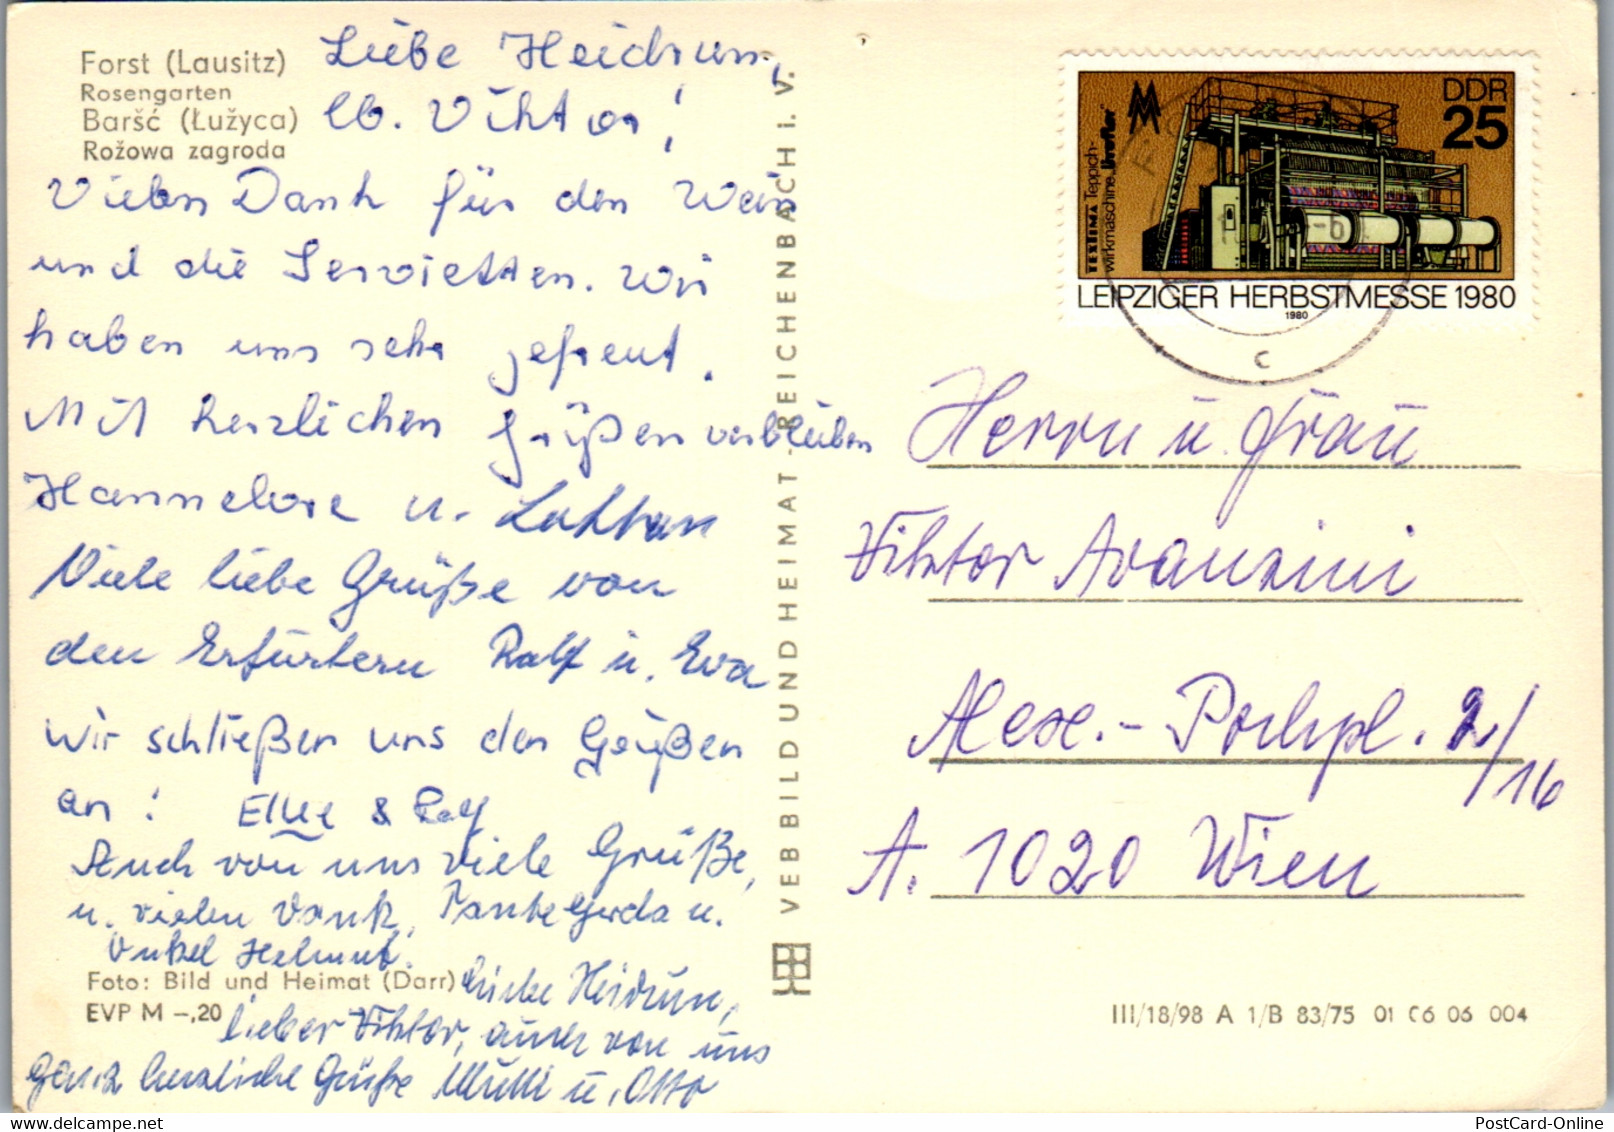 Forst (Lausitz)
Rosengarten
Baršć (Łužyca)
Rožowa zagroda
Liebe Heidrun,
lb. Viktor!
Vielen Dank für den Wein
und die Servietten. Wir
haben uns sehr gefreut.
Mit herzlichen Grüßen verbleiben
Hannelore u. Lothar
Viele liebe Grüße von
den Erfurtern Ralf u. Eva
Wir schließen uns den Grüßen
an! Elke & Ralf
Auch von uns viele Grüße,
u. vielen Dank, Tante Gerda u.
Onkel Helmut.
Liebe Heidrun,
lieber Viktor, auch von uns
ganz herzliche Grüße Mutti u. Otto
Foto: Bild und Heimat (Darr)
EVP M –,20
VEB BILD UND HEIMAT · REICHENBACH i. V.
DDR
25
MM
TEXTIMA Teppich-
wirkmaschine
LEIPZIGER HERBSTMESSE 1980
1980
c
Herrn u. Frau
Viktor Avanzini
Alex.-Pochpl. 2/16
A. 1020 Wien
III/18/98 A 1/B 83/75 01 06 06 004